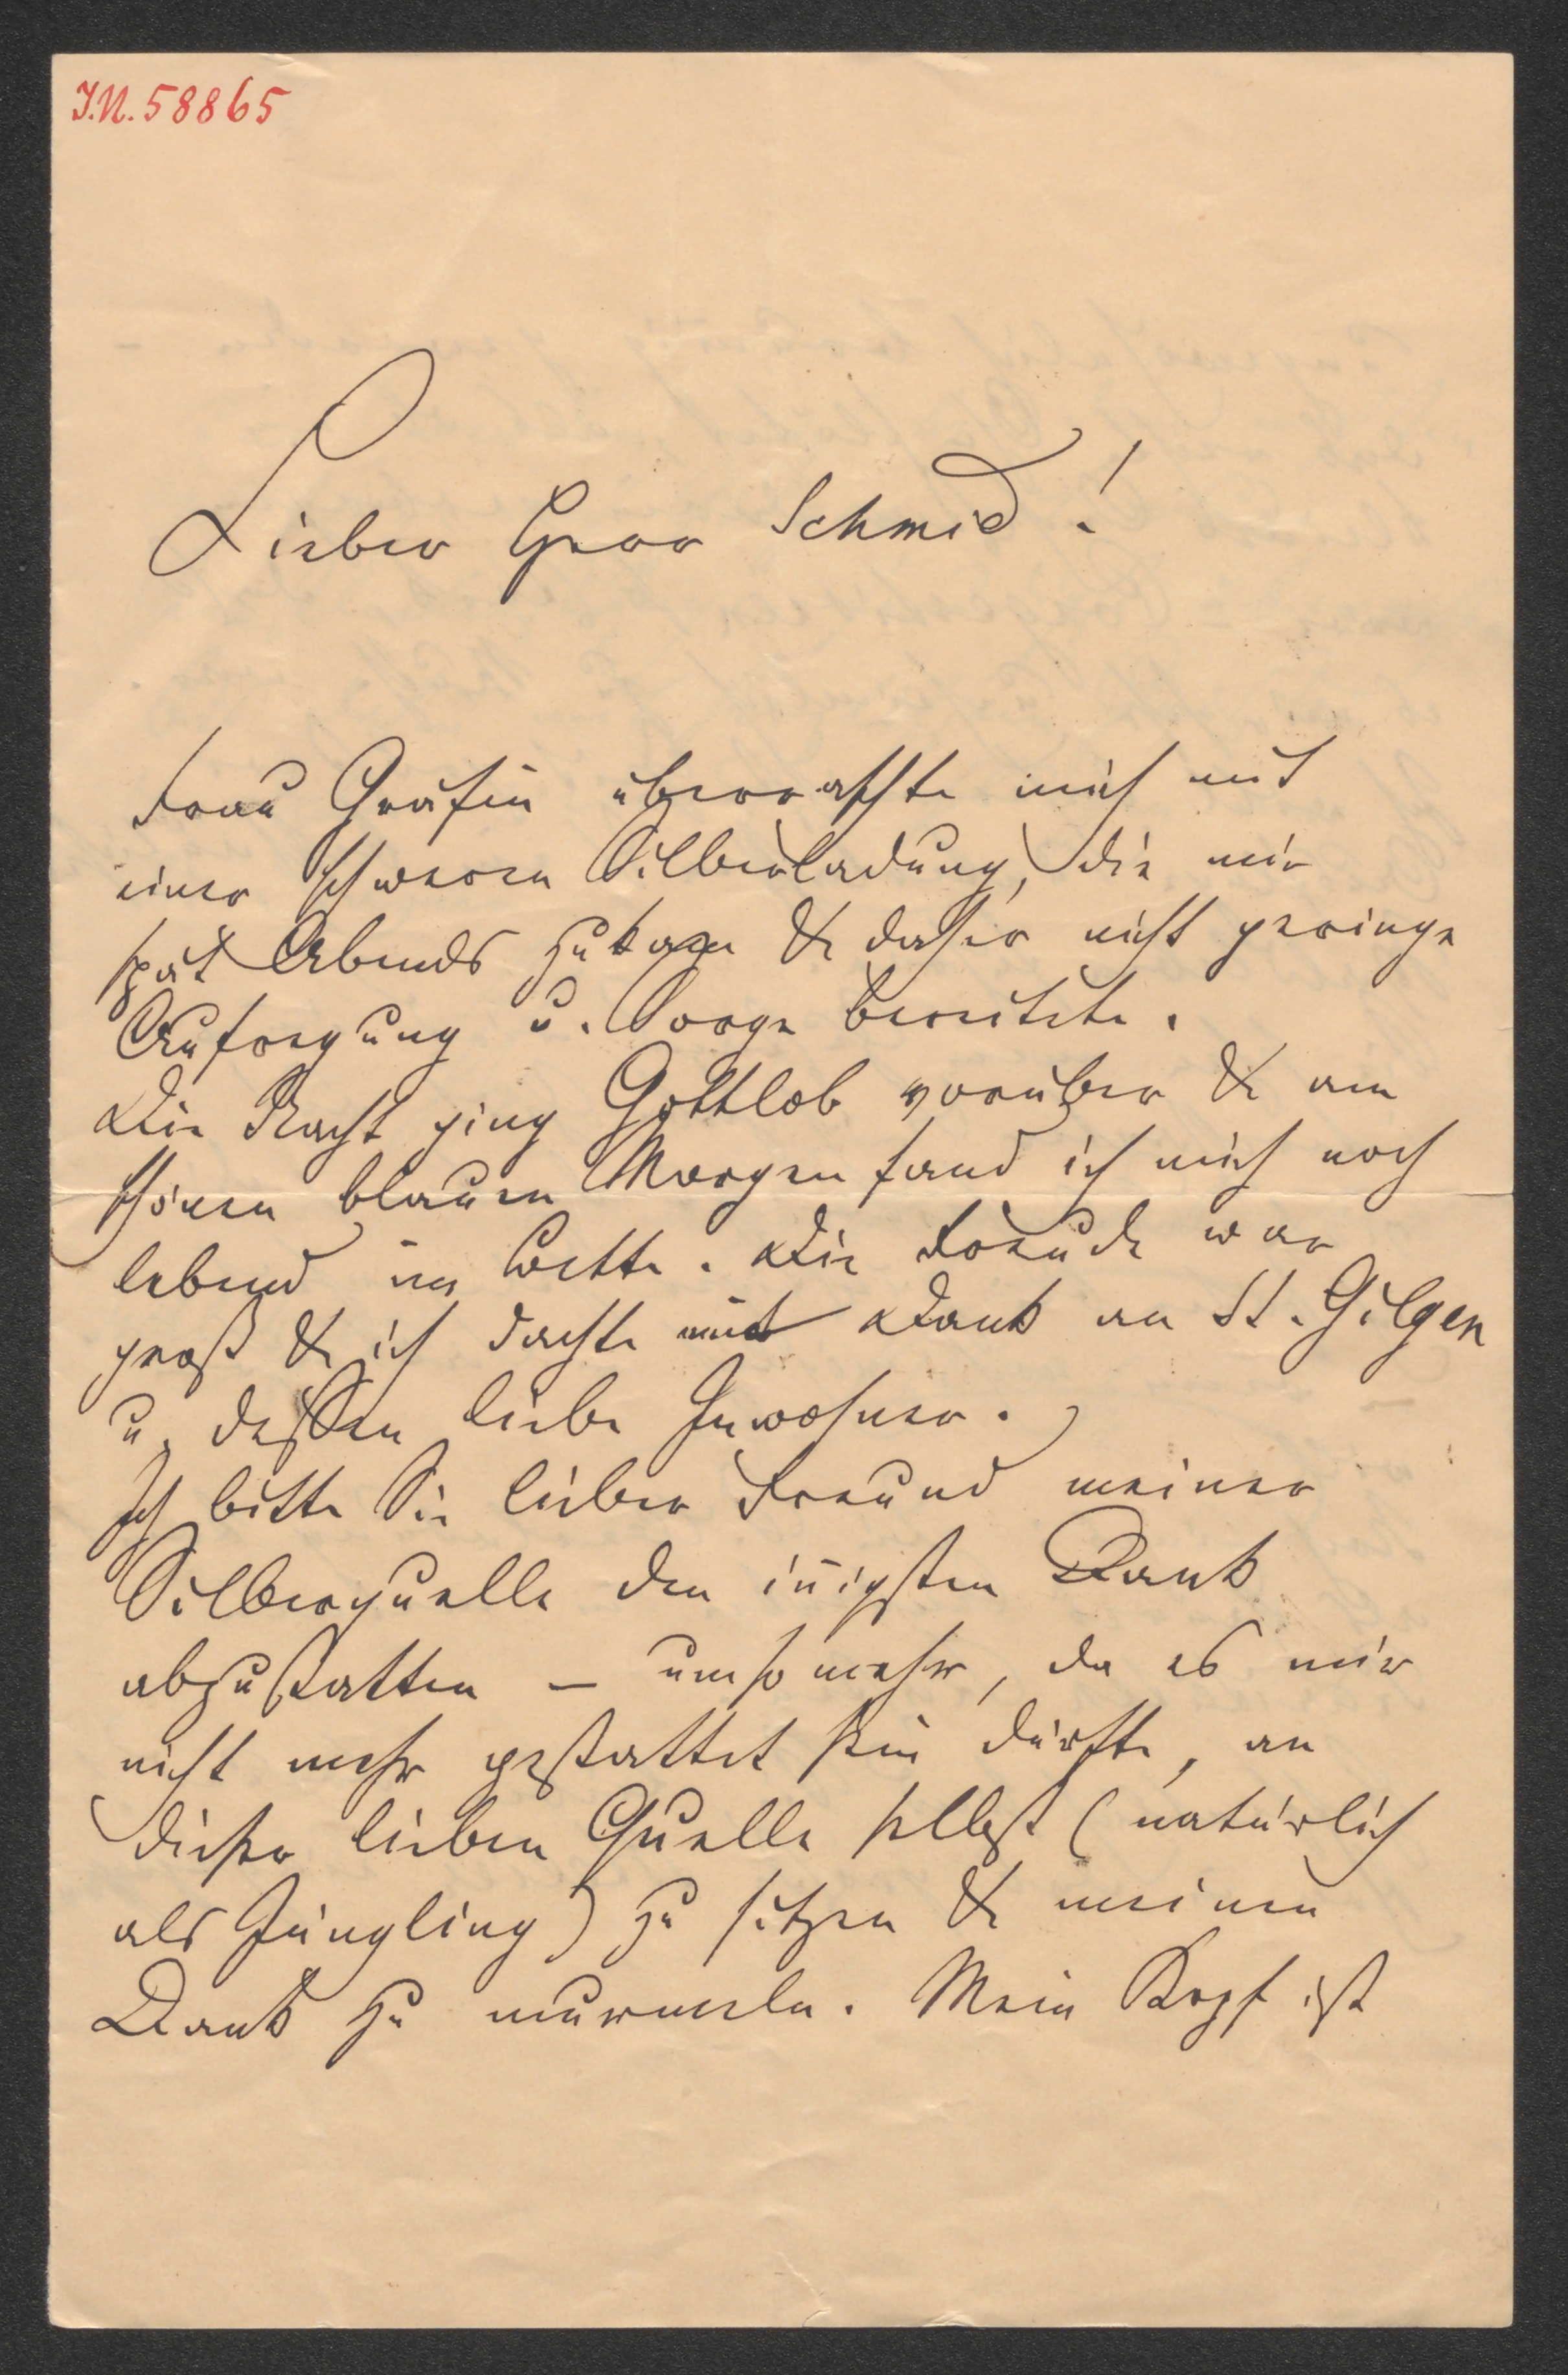 I.N. 58865
Lieber Herr Schmid!
Frau Gräfin überraschte mich mit
einer schweren Silberladung, die mir
spät Abends zukam & daher nicht geringe
Aufregung u. Sorge bereitete.
Die Nacht ging Gottlob vorüber & am
schönen blauen Morgen fand ich mich noch
lebend im Bette. Die Freude war
groß & ich dachte mit Dank an St. Gilgen
u. dessen liebe Inwohner.
Ich bitte Sie lieber Freund meiner
Silberquelle den iñigsten Dank
abzustatten – umso mehr, da es mir
nicht mehr gestattet sein dürfte, an
dieser lieben Quelle selbst (natürlich
als Jüngling) zu sitzen & meinen
Dank zu murmeln. Mein Kopf ist